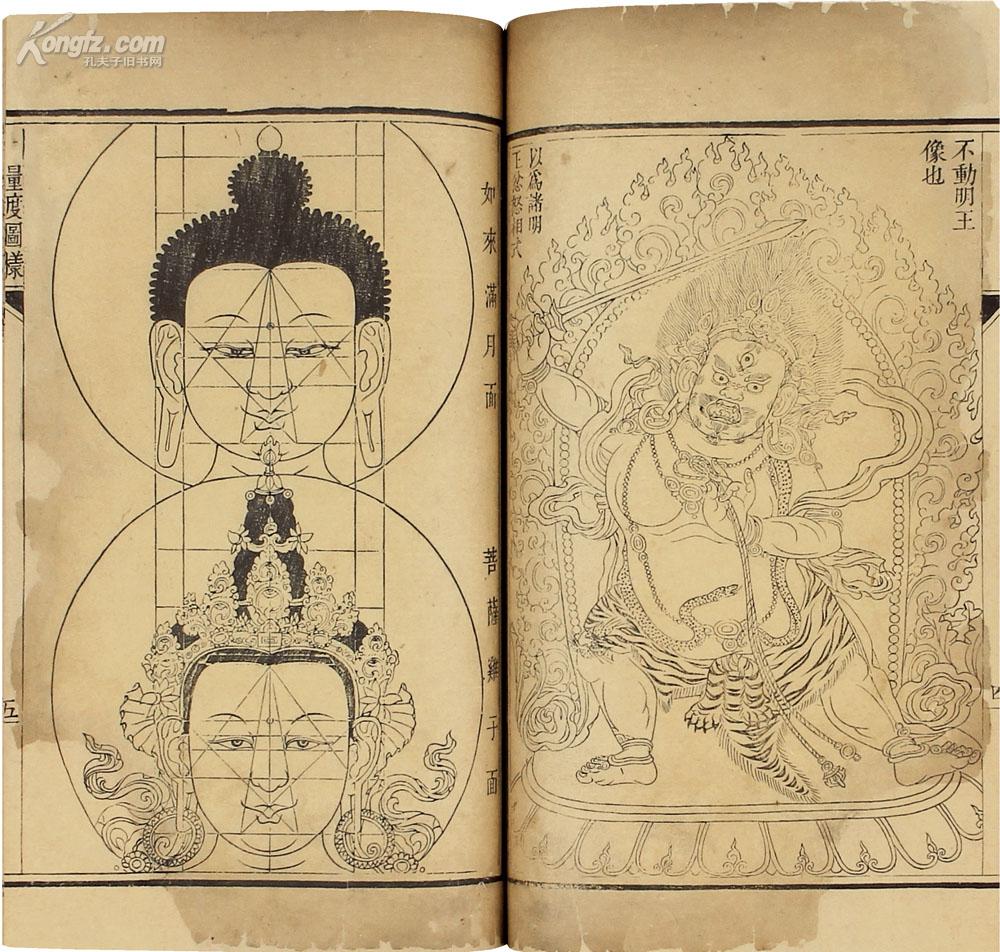 Kongfz.com
孔夫子旧书网
不動明王
像也
以為諸明
王忿怒相式
如來滿月面
菩薩雞子面
量度圖樣
五
四